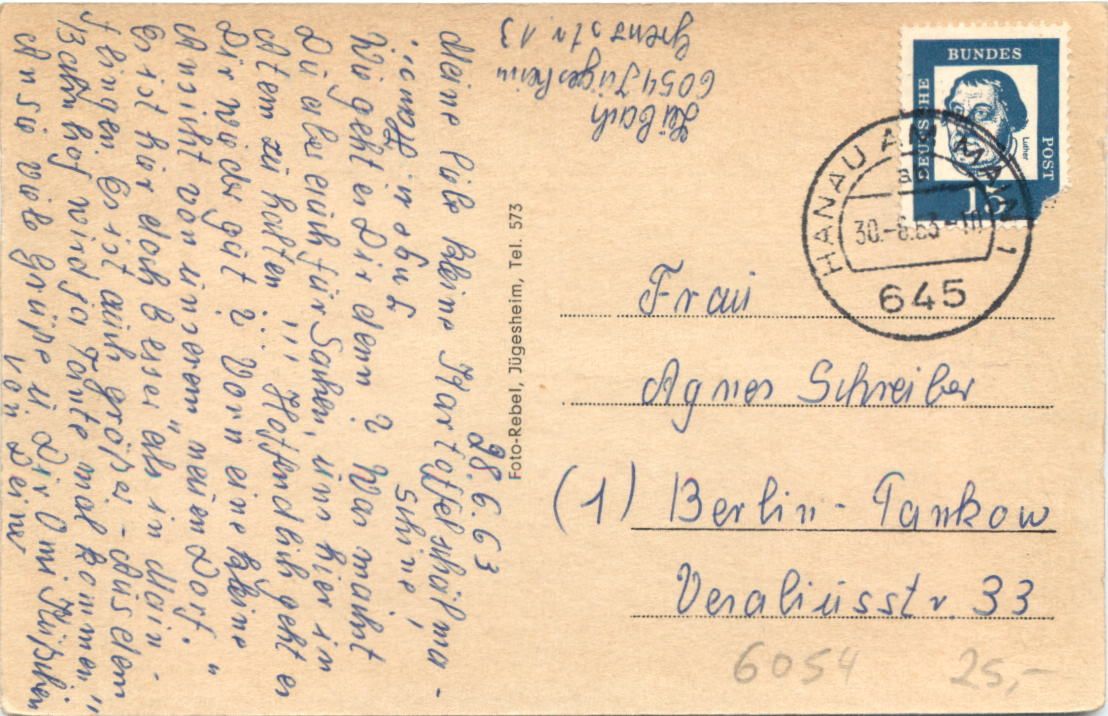 28.6.63
Meine liebe kleine Kartoffelschälma-
schine,
Wie geht es Dir denn? Was macht
Du aber auch für Sachen, uns hier in
Atem zu halten !!! Hoffendlich geht es
Dir wieder gut? Vorn eine kleine
Ansicht von unserem "neuen Dorf."
Es ist hier doch besser als in Main-
flingen. Es ist auch größer - Ausserdem
Bahnhof wird ja Tante mal kommen"
Also viele Grüße u. Dir Omi Küßchen
von Deine
Foto-Rebel, Jügesheim, Tel. 573
6054 Jügesheim
Grenzstr. 13
BUNDES
DEUSCHE
POST
Luther
15
HANAU AM MAIN 1
a
30.-6.63-10
645
Frau
Agnes Schreiber
(1) Berlin-Pankow
Vesaliusstr. 33
6054
25,-